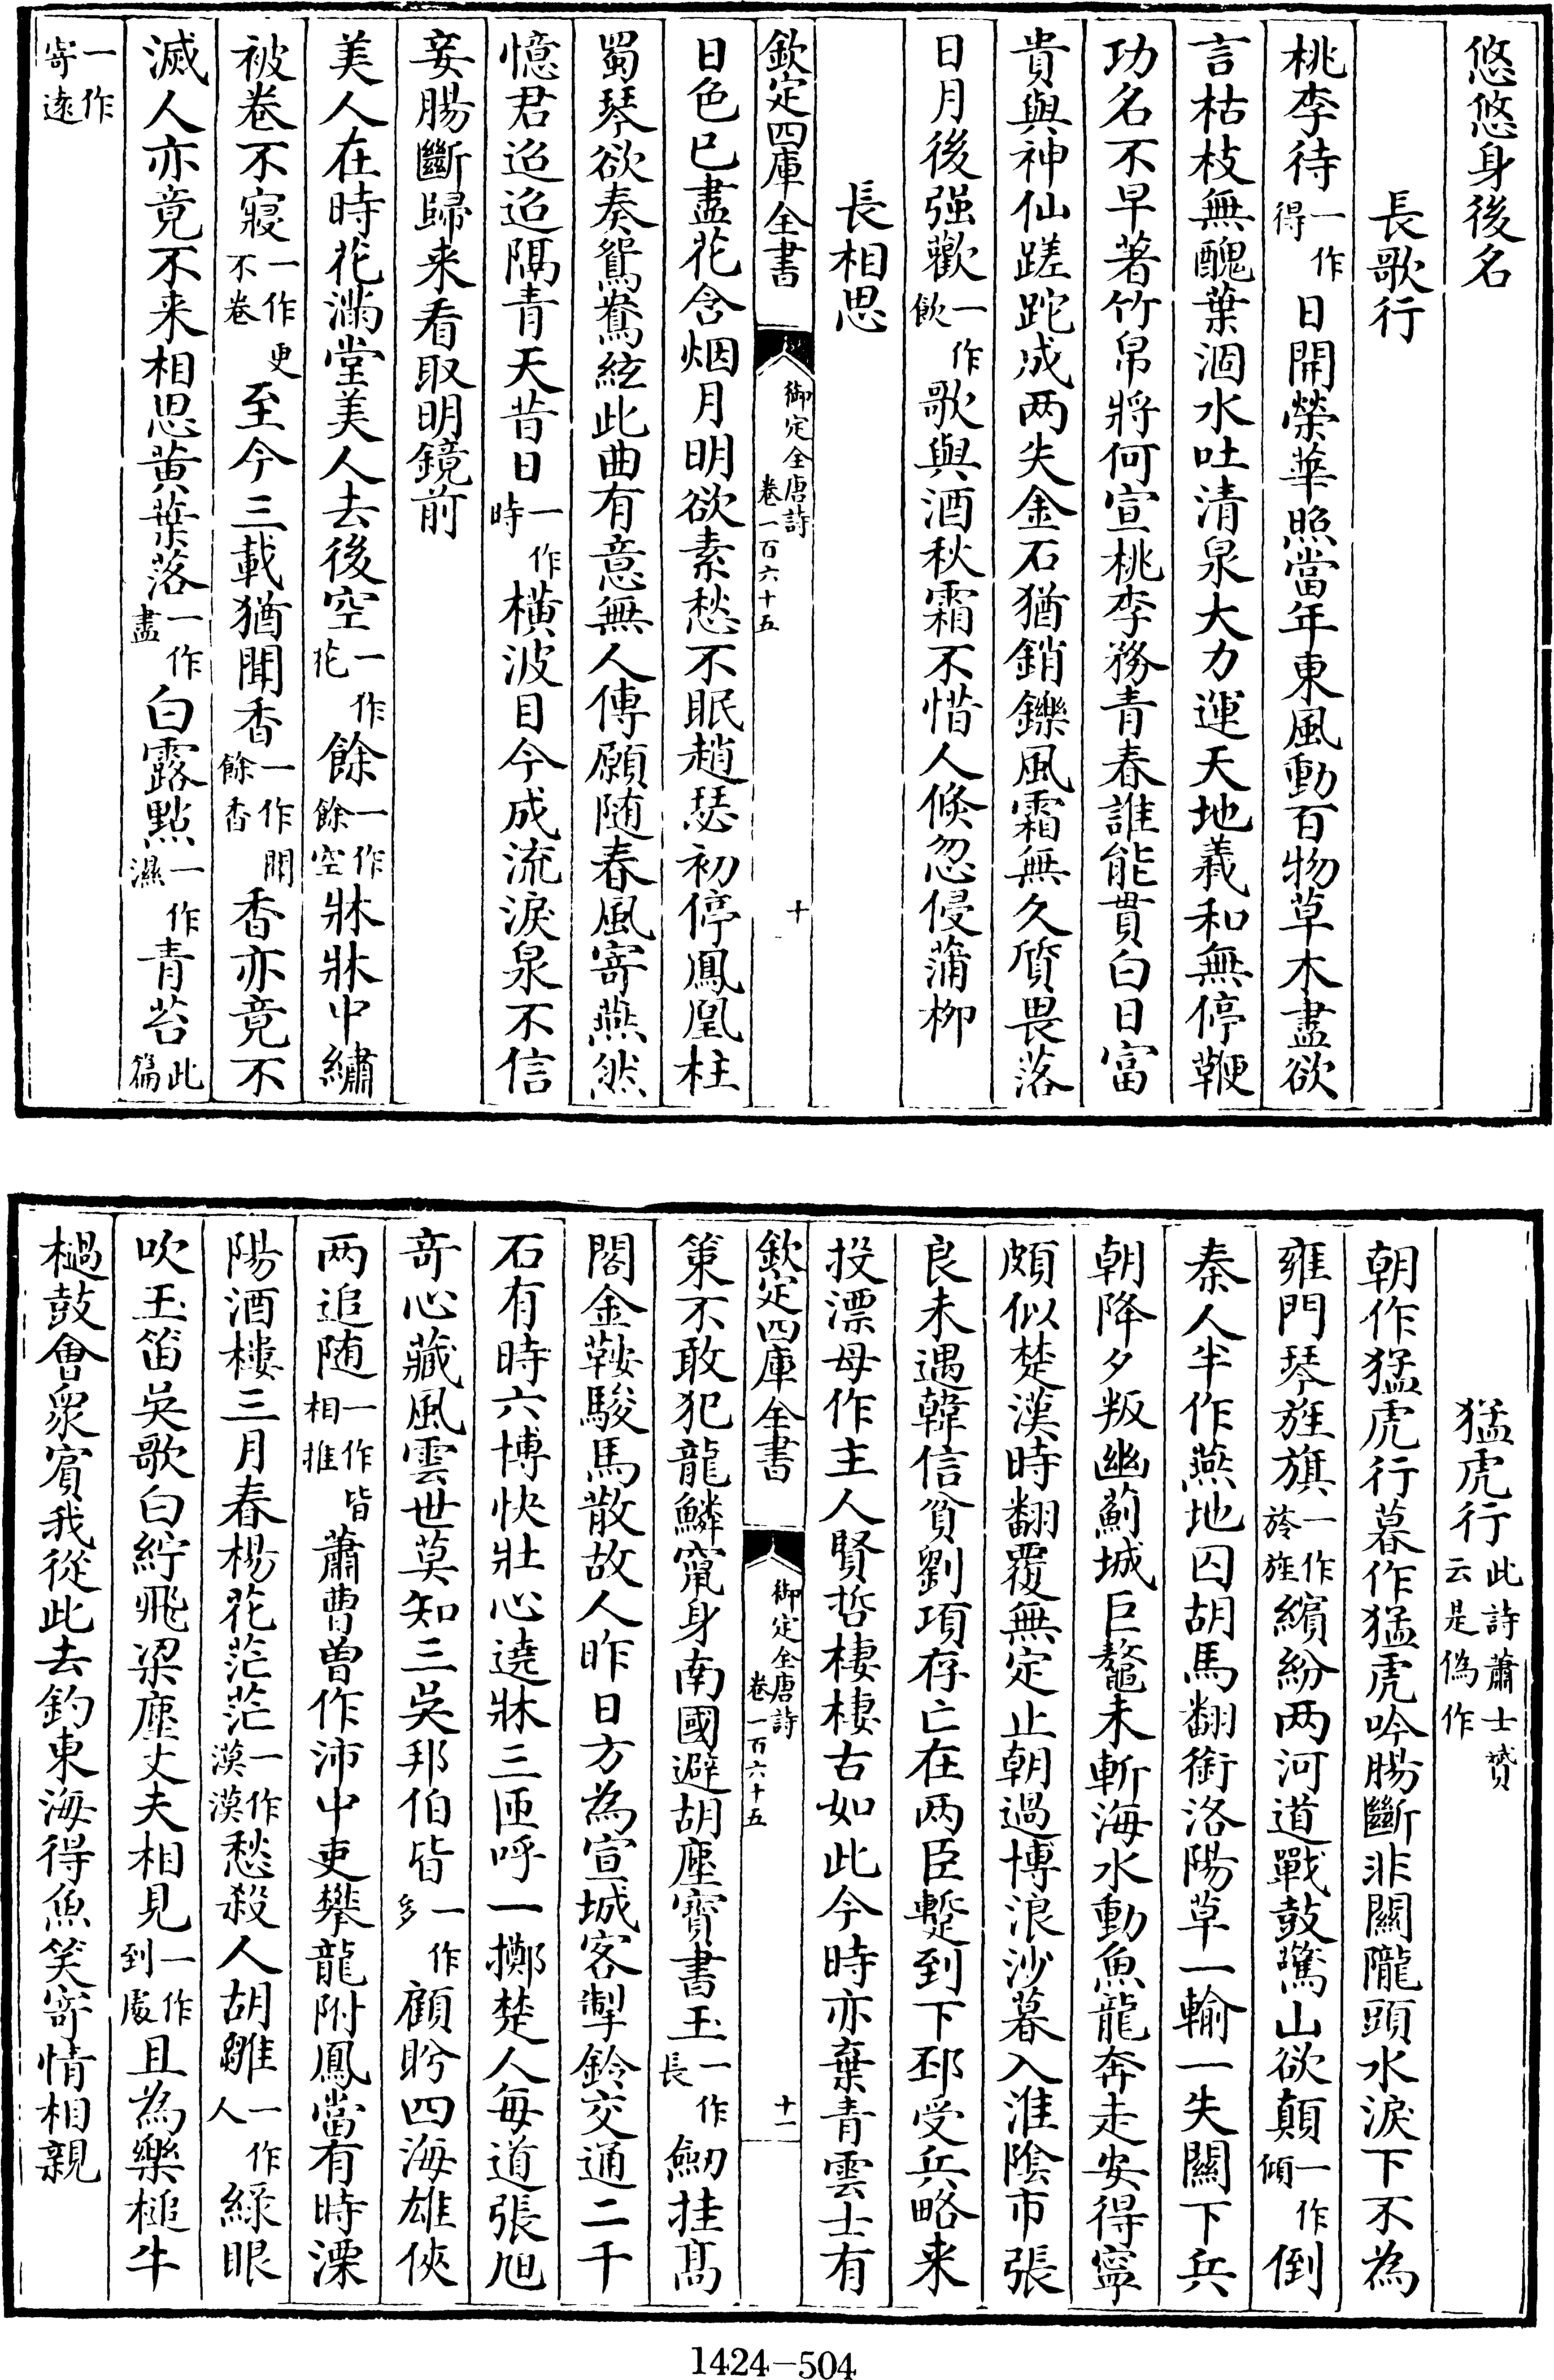 悠悠身後名
長歌行
桃李待一作得日開榮華照當年東風動百物草木盡欲
言枯枝無醜葉涸水吐清泉大力運天地羲和無停鞭
功名不早著竹帛將何宣桃李務青春誰能貰白日富
貴與神仙蹉跎成两失金石猶銷鑠風霜無久質畏落
日月後强歡一作飲歌與酒秋霜不惜人倐忽侵蒲栁
長相思
欽定四庫全書 御定全唐詩 卷一百六十五 十
日色已盡花含烟月明欲素愁不眠趙瑟初停鳳凰柱
蜀琴欲奏鴛鴦絃此曲有意無人傳願随春風寄燕然
憶君迢迢隔青天昔日一作時横波目今成流淚泉不信
妾腸斷歸来看取明鏡前
美人在時花滿堂美人去後空一作花餘一作餘空牀牀中繡
被卷不寢一作更不卷至今三載猶聞香一作聞餘香香亦竟不
滅人亦竟不来相思黄葉落一作盡白露㸃一作濕青苔此篇
一作寄遠
猛虎行此詩蕭士贇云是偽作
朝作猛虎行暮作猛虎吟腸斷非關隴頭水淚下不為
雍門琴旌旗一作旍旌繽紛两河道戰鼓驚山欲顛一作傾倒
秦人半作燕地囚胡馬翻銜洛陽草一輸一失關下兵
朝降夕叛幽薊城巨鼇未斬海水動魚龍奔走安得寧
頗似楚漢時翻覆無定止朝過博浪沙暮入淮陰市張
良未遇韓信貧劉項存亡在两臣蹔到下邳受兵略来
投漂母作主人賢哲棲棲古如此今時亦棄青雲士有
欽定四庫全書 御定全唐詩 卷一百六十五 十一
策不敢犯龍鱗竄身南國避胡塵寳書玉一作長劒挂髙
閣金鞍駿馬散故人昨日方為宣城客掣鈴交通二千
石有時六博快壯心遶牀三匝呼一擲楚人每道張旭
竒心藏風雲世莫知三吴邦伯皆一作多顧盻四海雄俠
两追随一作皆相推蕭曹曽作沛中吏攀龍附鳳當有時溧
陽酒樓三月春楊花茫茫一作漠漠愁殺人胡雛一作人緑眼
吹玉笛吴歌白紵飛梁塵丈夫相見一作到處且為樂槌牛
檛鼓會衆賔我從此去釣東海得魚笑寄情相親
1424-504